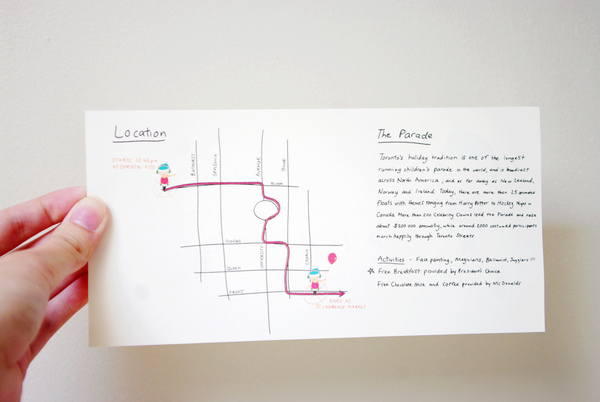 Location
STARTS 12:30pm
BATHURST
SPADINA
AVENUE
BLOOR
DUNDAS
UNIVERSITY
CHURCH
QUEEN
FRONT
ENDS AT
LAWRENCE MARKET
The Parade
Toronto's holiday tradition is one of the longest
running children's parade in the world, and is broadcast
across North America, and as far away as New Zealand,
Norway and Ireland. Today, there are more than 25 animated
floats with themes ranging from Harry Potter to Hockey Night in
Canada. More than 200 Celebrity Clowns lead the Parade and raise
about $200 000 annually, while around 2000 costumed participants
march happily through Toronto Streets
Activities - Face painting, Magicians, Balloonist, Jugglers
* Free Breakfast provided by President's Choice
Free Chocolate Milk and Coffee provided by McDonalds